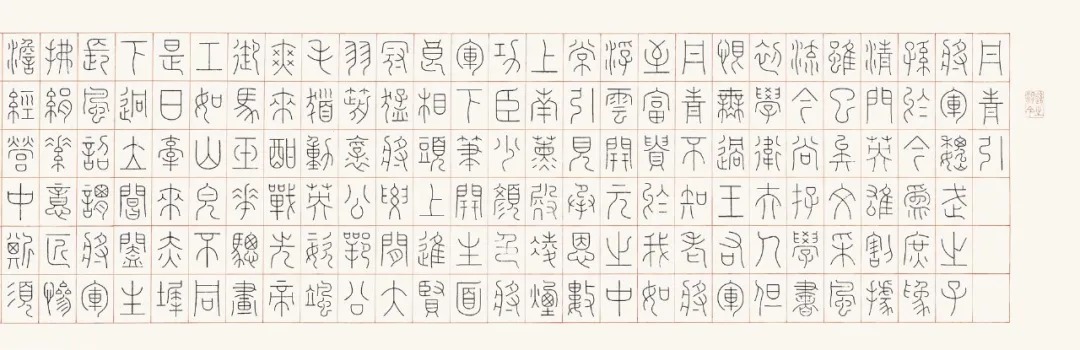 丹青引
將軍魏武之子
孫於今爲庶爲
清門英雄割據
雖已矣文采風
流今尚存學書
初學衛夫人但
恨無過王右軍
丹青不知老將
至富貴於我如
浮雲開元之中
常引見承恩數
上南薰殿凌煙
功臣少顏色將
軍下筆開生面
良相頭上進賢
冠猛將腰間大
羽箭褒公鄂公
毛髮動英姿颯
爽來酣戰先帝
御馬玉花驄畫
工如山皃不同
是日牽來赤墀
下迥立閶闔生
長風詔謂將軍
拂絹素意匠慘
澹經營中斯須